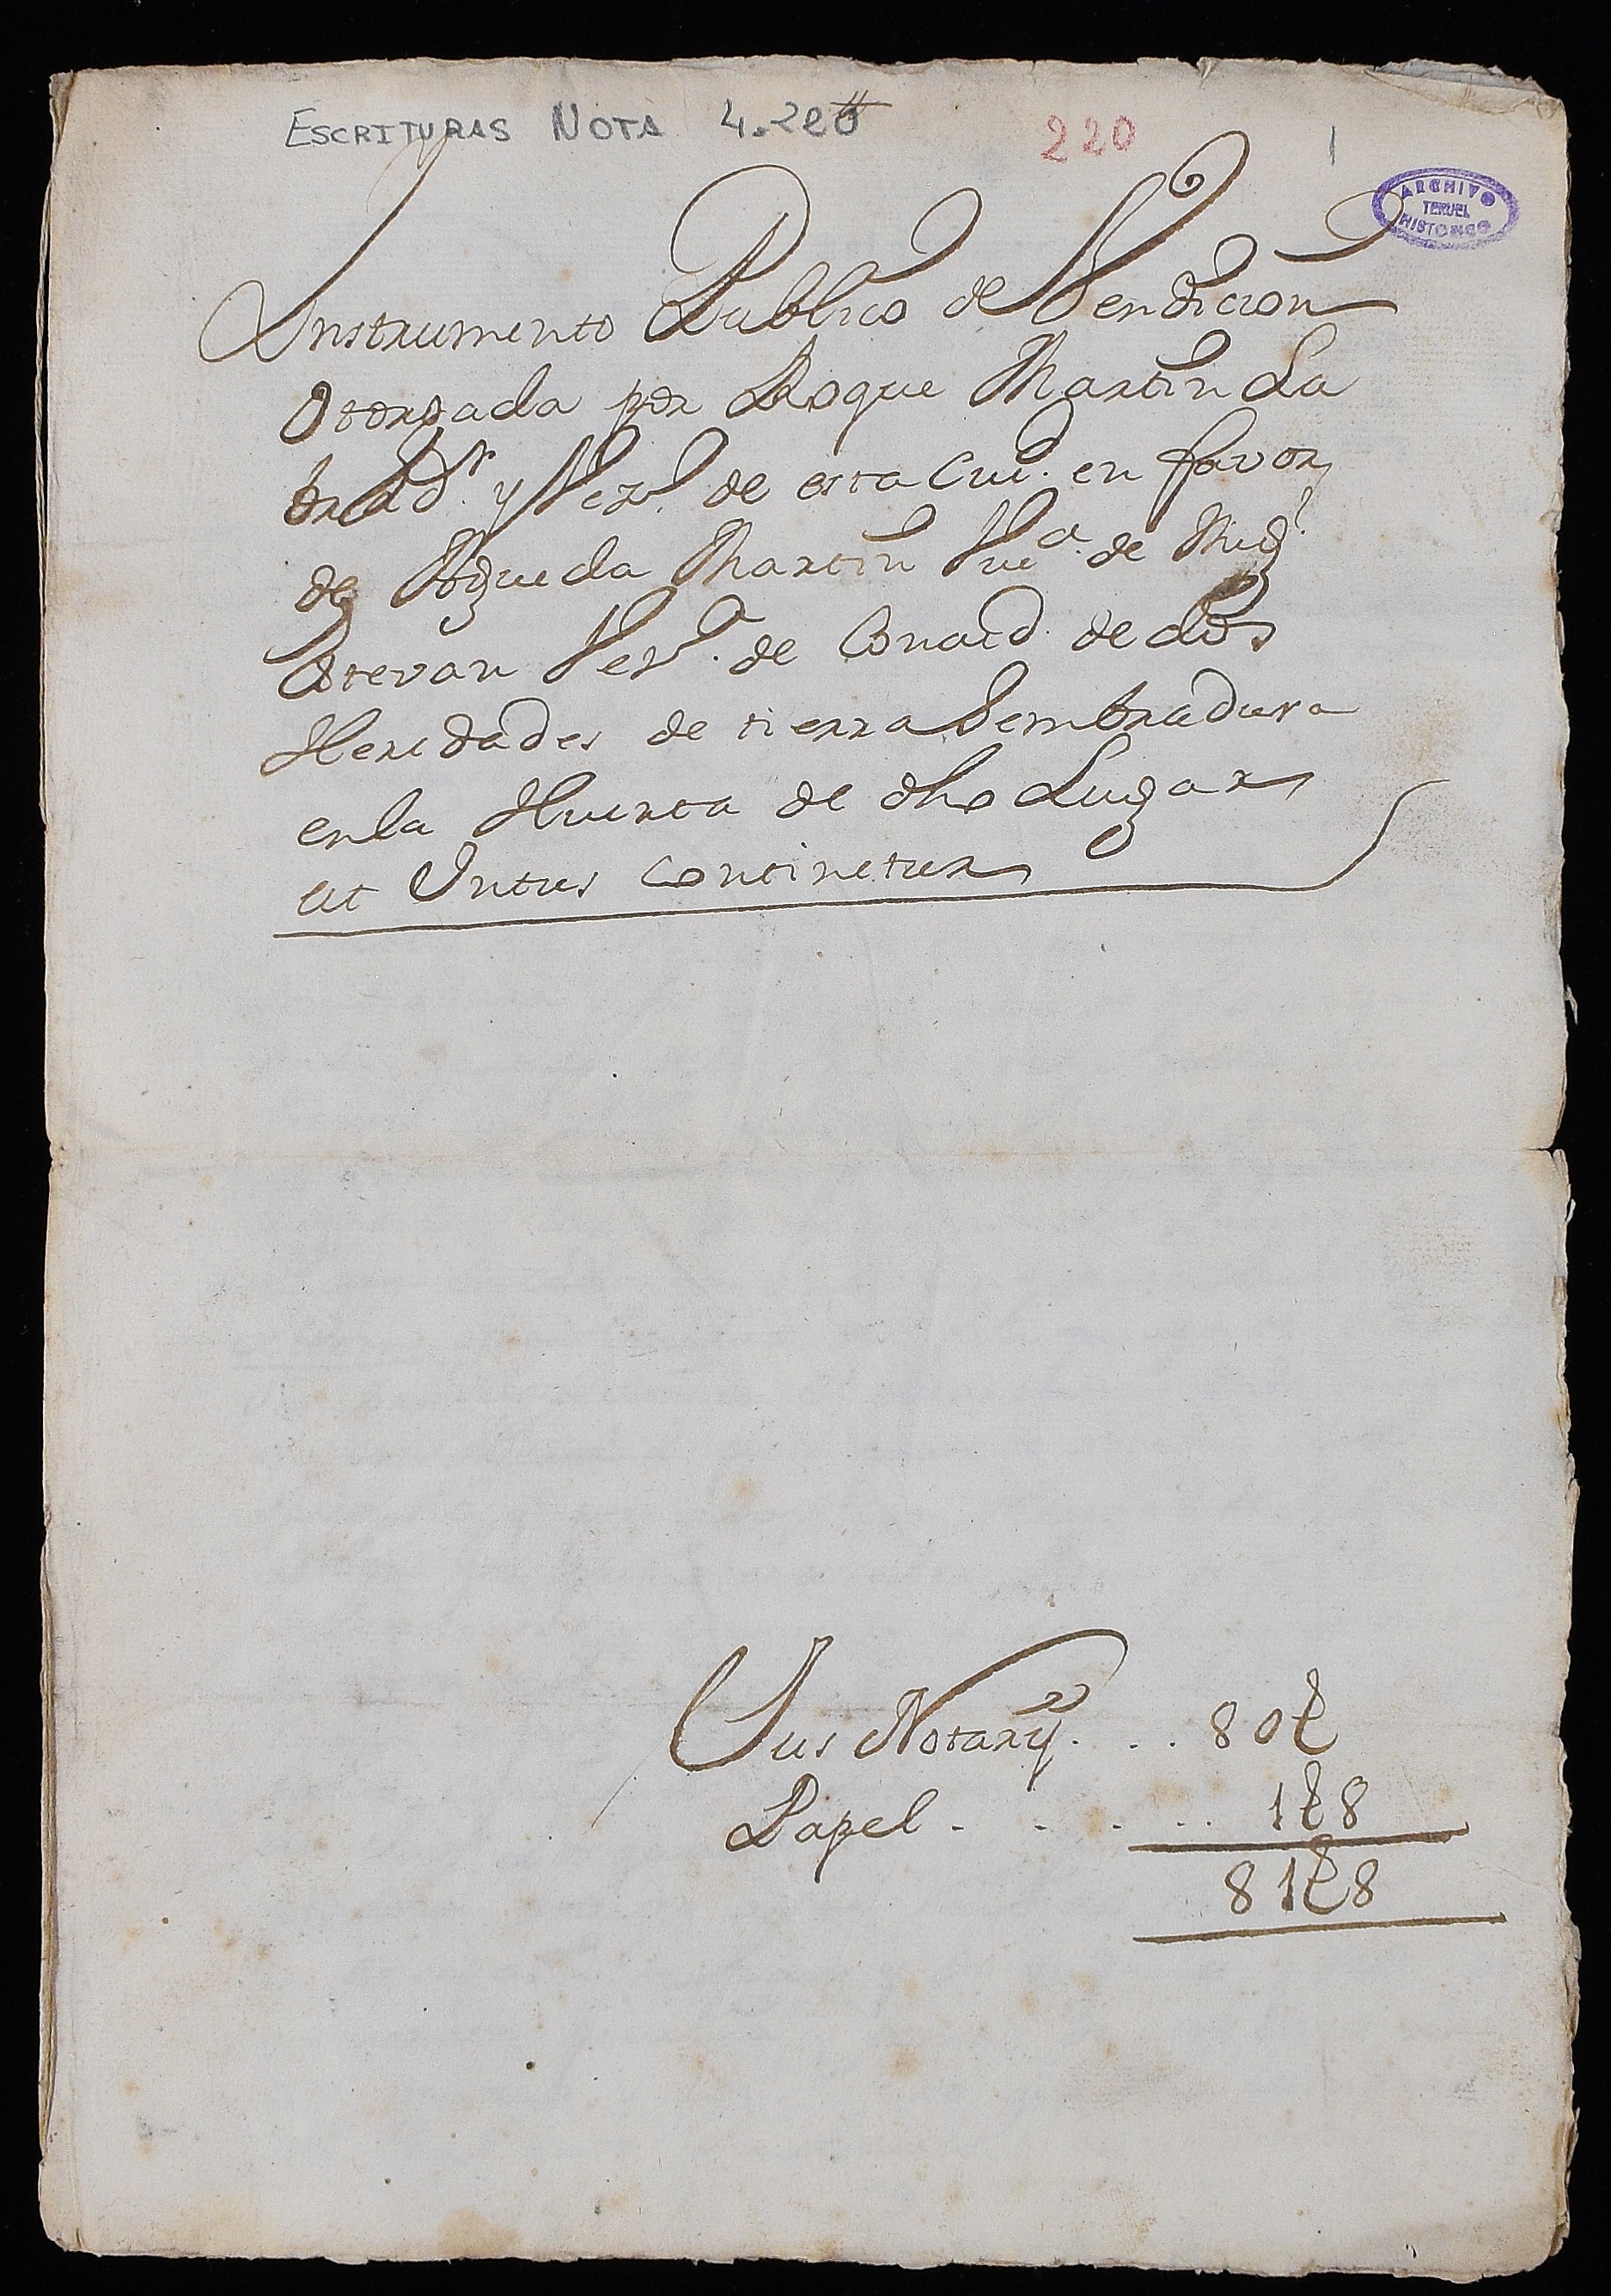 ESCRITURAS NOTA 4.220
220
1
ARCHIVO
TERUEL
HISTORICO
Instrumento Publico de Vendicion
Otorgada por Roque Martin La
brad.r y Vez.º de esta Ciu.d en favor
de Agueda Martin Viu.a de Mig.l
Estevan Vez.a de Concud. de dos
Heredades de tierra Sembradura
en la Huerta de dho Lugar
ut Intus Continetur
Jus Notarij. . . 80
Papel . . . . . 1 8
81 8